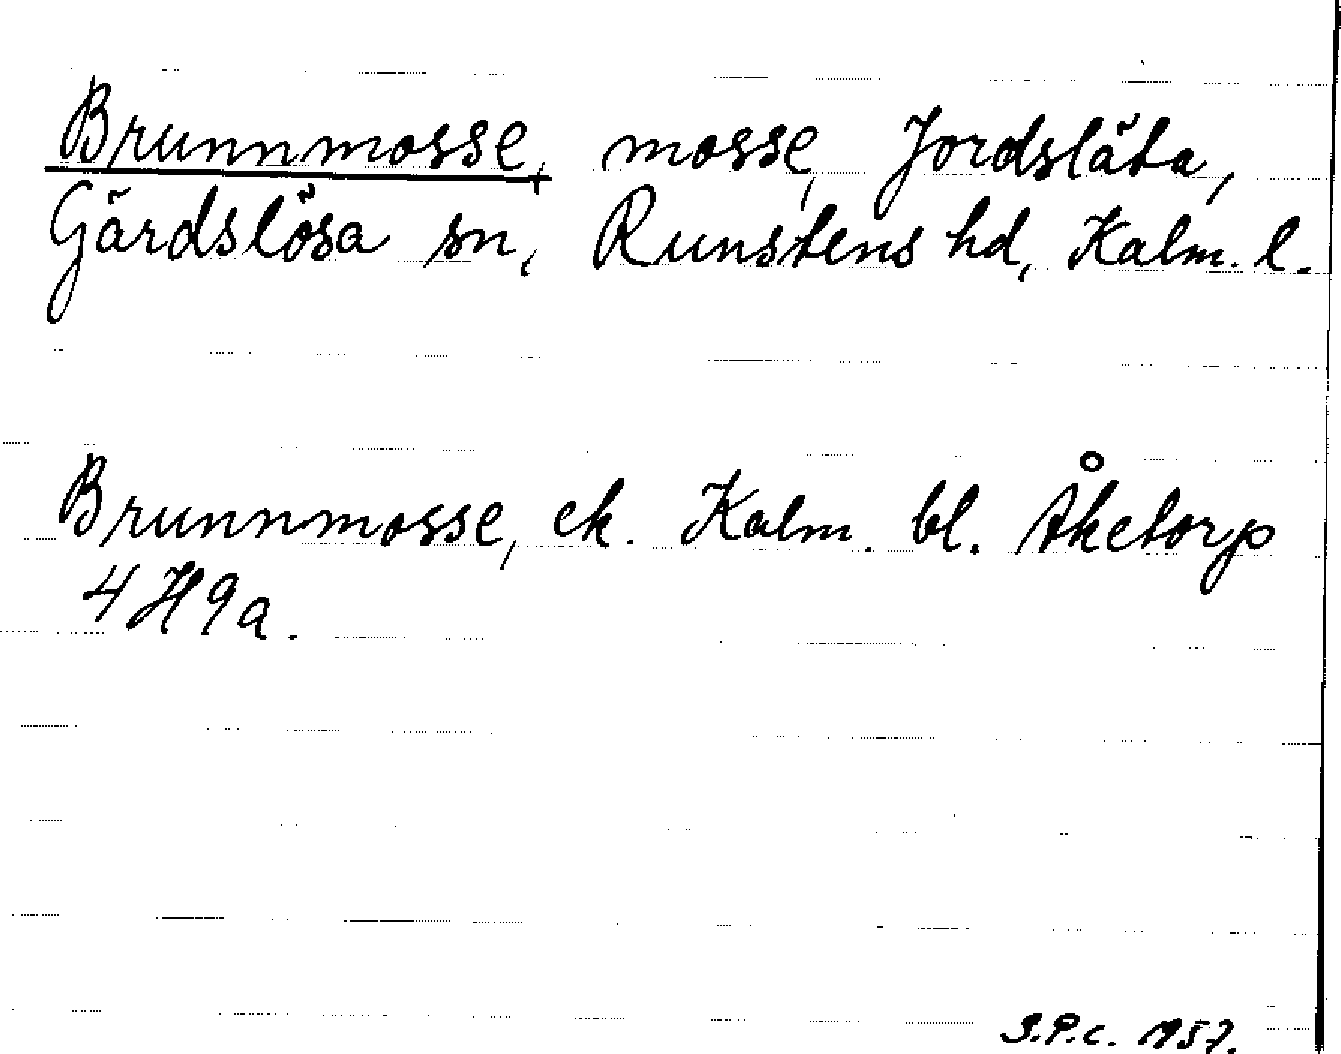 Brunnmosse, mosse, Jordsläta,
Gärdslösa sn, Runstens hd, Kalm. l.
Brunnmosse, ek. Kalm. bl. Åketorp
4H9a.
S.P.c. 1957.